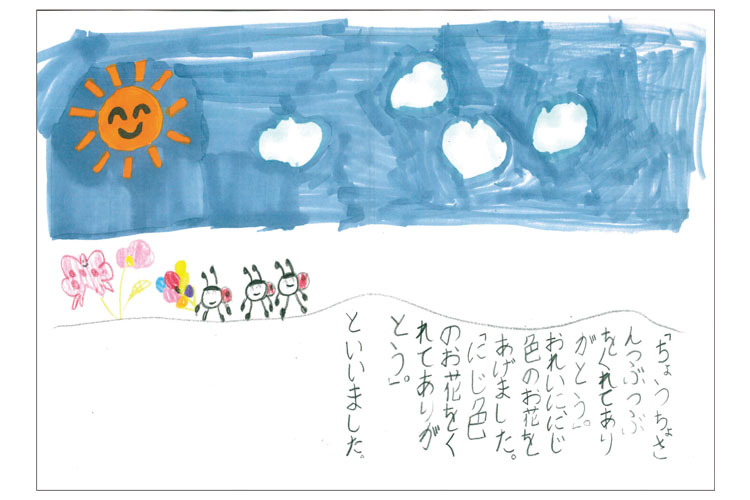 「ちょうちょさ
んつぶつぶ
をくれてあり
がとう」。
おれいににじ
色のお花を
あげました。
「にじ色
のお花をく
れてありが
とう」。
といいました。